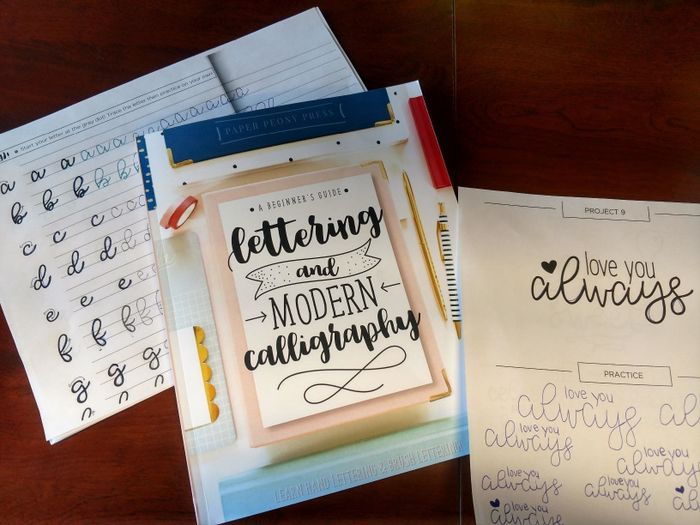 Start your letter at the gray dot! Trace the letter then practice on your own
a a a a a a a a a a a a a
b b b b b
c c c c
d d d d d
e e e
f f f
g g g
PAPER PEONY PRESS
• A BEGINNER'S GUIDE •
lettering
and
MODERN
calligraphy
LEARN HAND LETTERING & BRUSH LETTERING
PROJECT 9
love you
always
PRACTICE
love you
always
love you
always
love you
always
love you
always
love you
always
love you
always